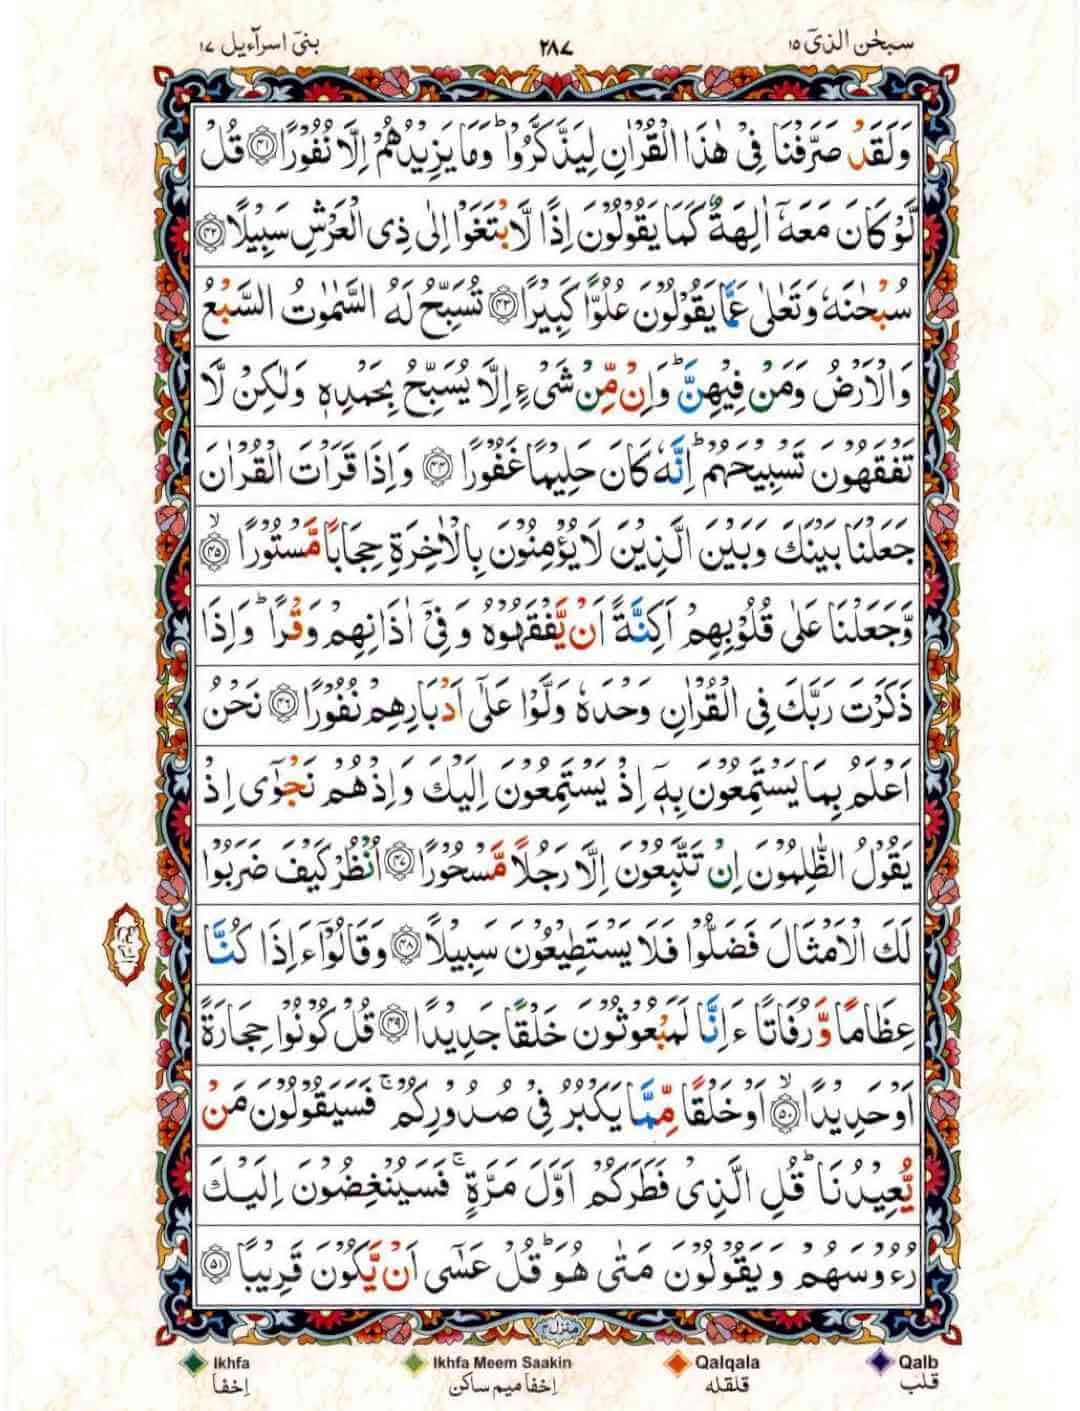 سبحٰن الذیٓ ١٥
٢٨٧
بنیٓ اسرآءیل ١٧
وَلَقَدْ صَرَّفْنَا فِیْ هٰذَا الْقُرْاٰنِ لِیَذَّكَّرُوْاؕ وَمَا یَزِیْدُهُمْ اِلَّا نُفُوْرًا ۝٤١ قُلْ
لَّوْ كَانَ مَعَهٗۤ اٰلِهَةٌ كَمَا یَقُوْلُوْنَ اِذًا لَّابْتَغَوْا اِلٰی ذِی الْعَرْشِ سَبِیْلًا ۝٤٢
سُبْحٰنَهٗ وَتَعٰلٰی عَمَّا یَقُوْلُوْنَ عُلُوًّا كَبِیْرًا ۝٤٣ تُسَبِّحُ لَهُ السَّمٰوٰتُ السَّبْعُ
وَالْاَرْضُ وَمَنْ فِیْهِنَّؕ وَاِنْ مِّنْ شَیْءٍ اِلَّا یُسَبِّحُ بِحَمْدِهٖ وَلٰكِنْ لَّا
تَفْقَهُوْنَ تَسْبِیْحَهُمْؕ اِنَّهٗ كَانَ حَلِیْمًا غَفُوْرًا ۝٤٤ وَاِذَا قَرَاْتَ الْقُرْاٰنَ
جَعَلْنَا بَیْنَكَ وَبَیْنَ الَّذِیْنَ لَا یُؤْمِنُوْنَ بِالْاٰخِرَةِ حِجَابًا مَّسْتُوْرًاۙ ۝٤٥
وَّجَعَلْنَا عَلٰی قُلُوْبِهِمْ اَكِنَّةً اَنْ یَّفْقَهُوْهُ وَفِیْۤ اٰذَانِهِمْ وَقْرًاؕ وَاِذَا
ذَكَرْتَ رَبَّكَ فِی الْقُرْاٰنِ وَحْدَهٗ وَلَّوْا عَلٰۤی اَدْبَارِهِمْ نُفُوْرًا ۝٤٦ نَحْنُ
اَعْلَمُ بِمَا یَسْتَمِعُوْنَ بِهٖۤ اِذْ یَسْتَمِعُوْنَ اِلَیْكَ وَاِذْ هُمْ نَجْوٰۤی اِذْ
یَقُوْلُ الظّٰلِمُوْنَ اِنْ تَتَّبِعُوْنَ اِلَّا رَجُلًا مَّسْحُوْرًا ۝٤٧ اُنْظُرْ كَیْفَ ضَرَبُوْا
لَكَ الْاَمْثَالَ فَضَلُّوْا فَلَا یَسْتَطِیْعُوْنَ سَبِیْلًا ۝٤٨ وَقَالُوْۤا ءَاِذَا كُنَّا
عِظَامًا وَّرُفَاتًا ءَاِنَّا لَمَبْعُوْثُوْنَ خَلْقًا جَدِیْدًا ۝٤٩ قُلْ كُوْنُوْا حِجَارَةً
اَوْ حَدِیْدًاۙ ۝٥٠ اَوْ خَلْقًا مِّمَّا یَكْبُرُ فِیْ صُدُوْرِكُمْۚ فَسَیَقُوْلُوْنَ مَنْ
یُّعِیْدُنَاؕ قُلِ الَّذِیْ فَطَرَكُمْ اَوَّلَ مَرَّةٍۚ فَسَیُنْغِضُوْنَ اِلَیْكَ
رُءُوْسَهُمْ وَیَقُوْلُوْنَ مَتٰی هُوَؕ قُلْ عَسٰۤی اَنْ یَّكُوْنَ قَرِیْبًا ۝٥١
منزل ٤
Ikhfa Ikhfa Meem Saakin Qalqala Qalb
اِخفا اِخفا میم ساکن قلقله قلب